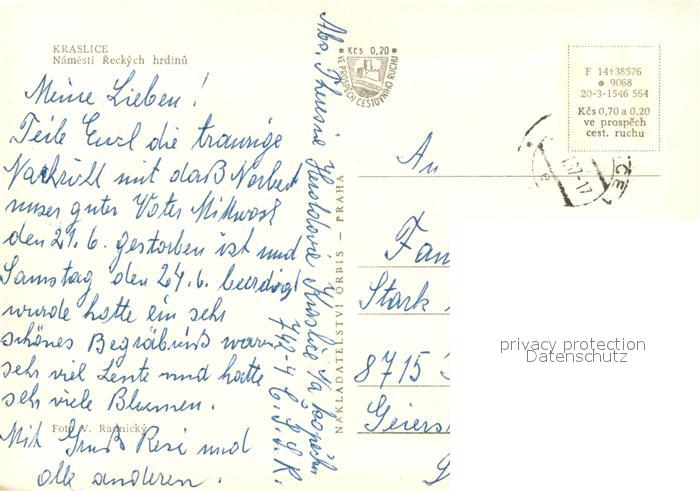 KRASLICE
Náměstí Řeckých hrdinů
Meine Lieben!
Teile Euch die traurige
Nachricht mit daß Norbert
unser guter Vater Mittwoch
den 21.6. gestorben ist und
Samstag den 24.6. beerdigt
wurde hatte ein sehr
schönes Begräbniß waren
sehr viel Leute und hatte
sehr viele Blumen.
Foto V. Radnický
Mit Gruß Resi und
alle anderen.
Abs. Theresie Heroldová Kraslice
742-4 Č.S.S.R.
NAKLADATELSTVÍ ORBIS — PRAHA
Kčs 0,20
VE PROSPĚCH CESTOVNÍHO RUCHU
F 14†38576
9068
20-3-1546 564
Kčs 0,70 a 0,20
ve prospěch
cest. ruchu
An
Fam
Stark
8715
Geiers
privacy protection
Datenschutz